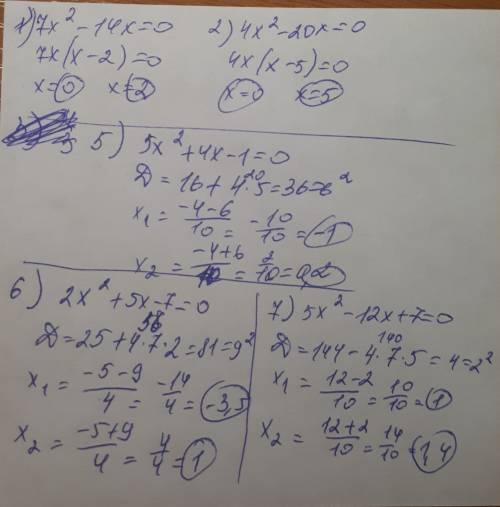 1) 7x² - 14x = 0
7x(x - 2) = 0
x = 0 x = 2
2) 4x² - 20x = 0
4x(x - 5) = 0
x = 0 x = 5
5) 5x² + 4x - 1 = 0
20
D = 16 + 4·5 = 36 = 6²
x₁ = (-4 - 6)/10 = -10/10 = -1
x₂ = (-4 + 6)/10 = 2/10 = 0,2
6) 2x² + 5x - 7 = 0
56
D = 25 + 4·7·2 = 81 = 9²
x₁ = (-5 - 9)/4 = -14/4 = -3,5
x₂ = (-5 + 9)/4 = 4/4 = 1
7) 5x² - 12x + 7 = 0
140
D = 144 - 4·7·5 = 4 = 2²
x₁ = (12 - 2)/10 = 10/10 = 1
x₂ = (12 + 2)/10 = 14/10 = 1,4